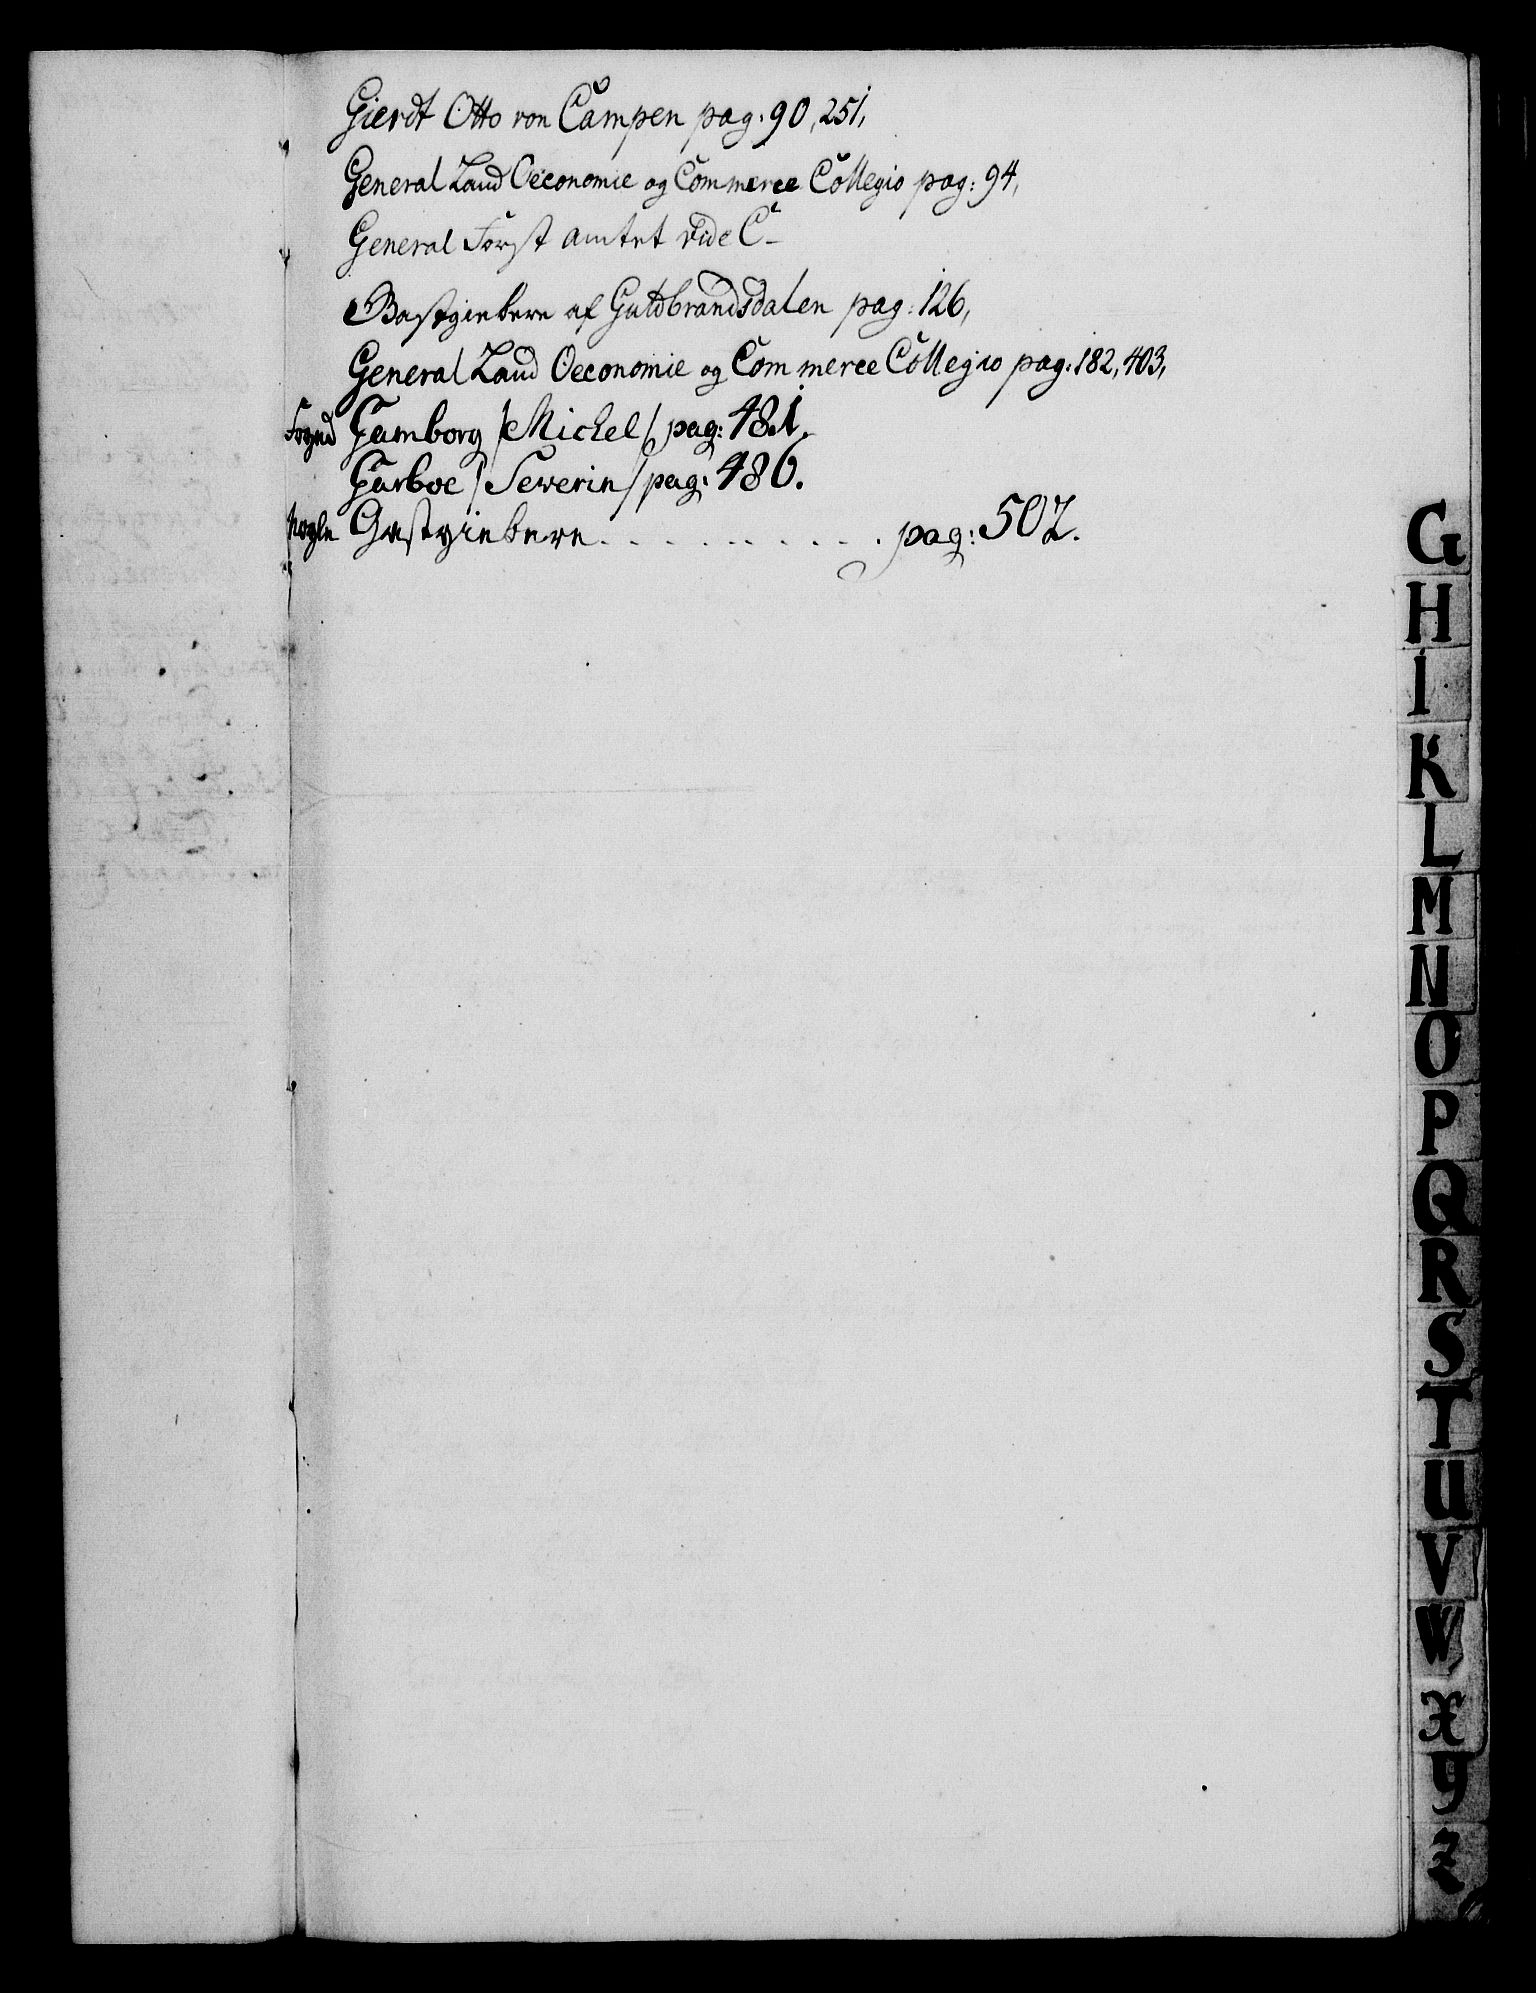 Gierdt Otto von Campen pag: 90, 251,
General Land Oeconomie og Commerce Collegio pag: 94,
General Forst amtet vide C-
Gastgiebere af Guldbrandsdalen pag: 126,
General Land Oeconomie og Commerce Collegio pag: 182, 403,
Foged Gamborg /Michel/ pag: 481.
Garboe /Severin/ pag: 486.
Nogle Gastgiebere . . . . . . . . . . pag: 507.
G
H
I
K
L
M
N
O
P
Q
R
S
T
U
V
W
X
Y
Z